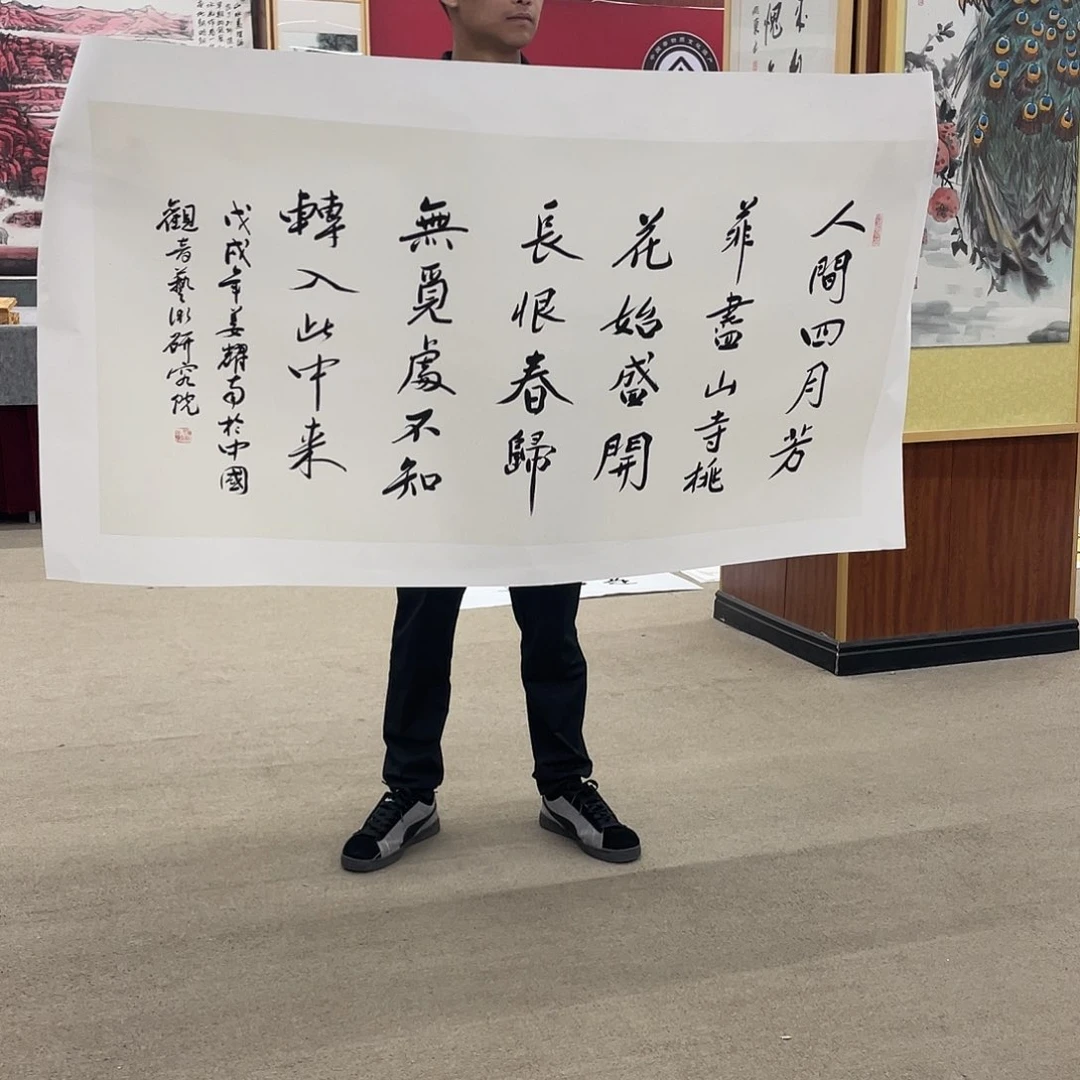 人間四月芳
菲盡山寺桃
花始盛開
長恨春歸
無覓處不知
轉入此中来
戊戌年姜耀南於中國
觀音藝術研究院
愧